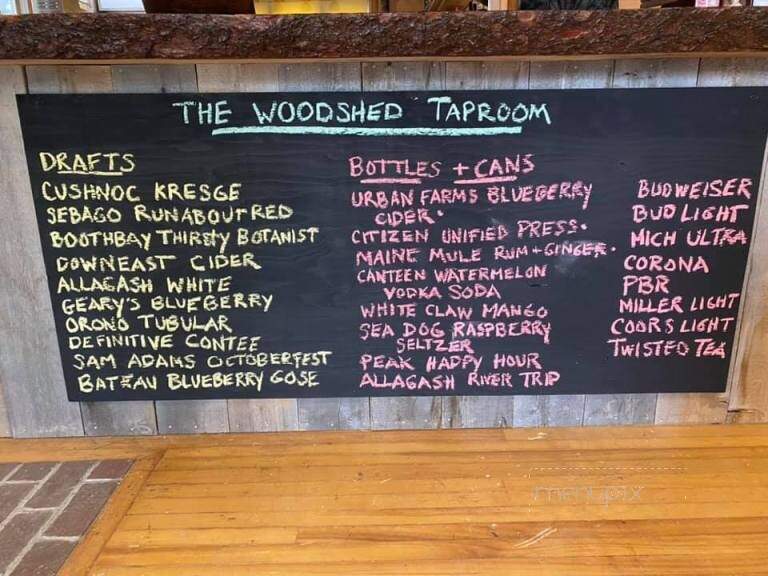 THE WOODSHED TAPROOM
DRAFTS
CUSHNOC KRESGE
SEBAGO RUNABOUT RED
BOOTHBAY THIRSTY BOTANIST
DOWNEAST CIDER
ALLAGASH WHITE
GEARY'S BLUEBERRY
ORONO TUBULAR
DEFINITIVE CONTEE
SAM ADAMS OCTOBERFEST
BATEAU BLUEBERRY GOSE
BOTTLES + CANS
URBAN FARMS BLUEBERRY
CIDER
CITIZEN UNIFIED PRESS
MAINE MULE RUM + GINGER
CANTEEN WATERMELON
VODKA SODA
WHITE CLAW MANGO
SEA DOG RASPBERRY
SELTZER
PEAK HAPPY HOUR
ALLAGASH RIVER TRIP
BUDWEISER
BUD LIGHT
MICH ULTRA
CORONA
PBR
MILLER LIGHT
COORS LIGHT
TWISTED TEA
menupix